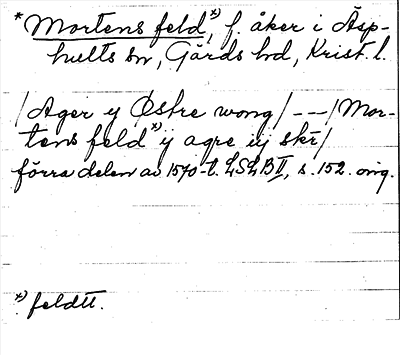 * Mortens feld x), f. åker i Äsp-
hults sn, Gärds hd, Krist. l.
/Ager y Østre wong/ ---/Mor-
tens feld x) ij agre iij skr/
förra delen av 1570-t. LSLB II, s. 152. orig.
x) feldtt.